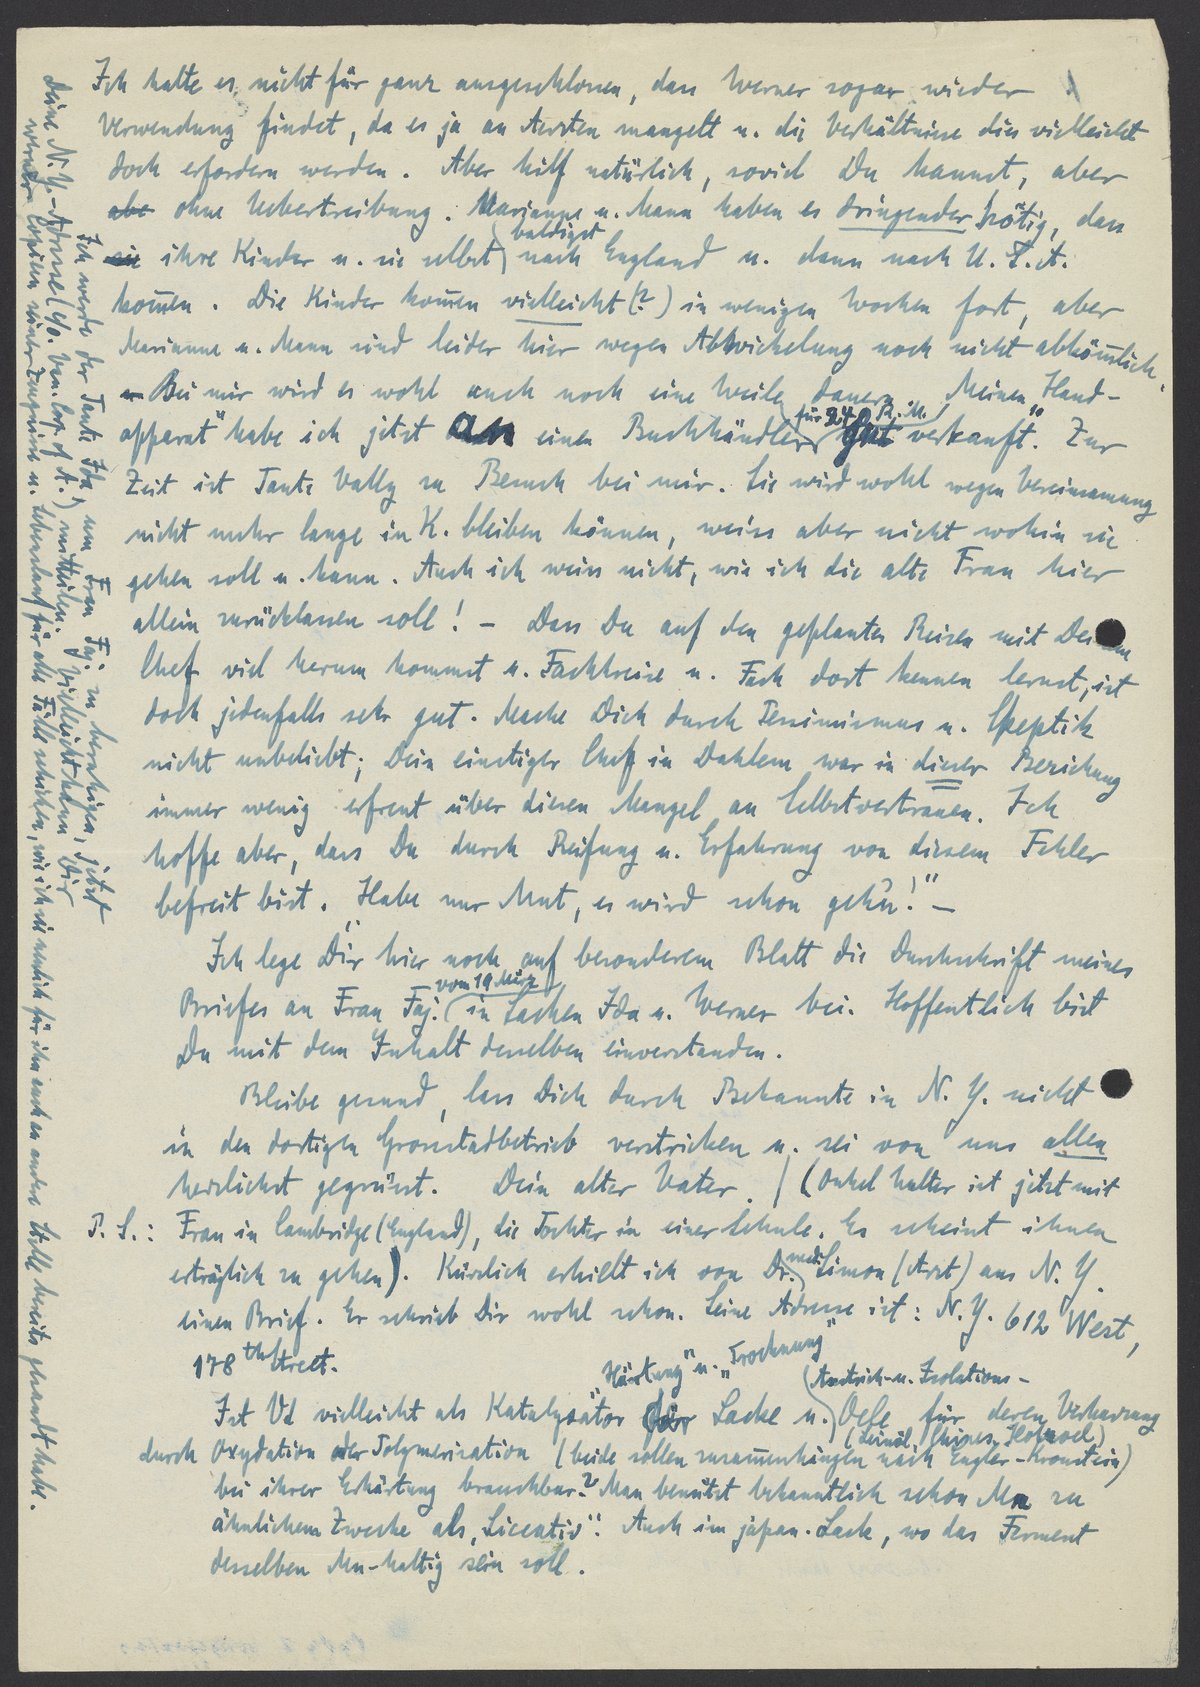 Ich halte es nicht für ganz ausgeschlossen, dass Werner sogar wieder
Verwendung findet, da es ja an Aerzten mangelt u. die Verhältnisse dies vielleicht
doch erfordern werden. Aber hilf natürlich, soviel Du kannst, aber
abe ohne Uebertreibung. Marianne u. Mann haben es dringender nötig, dass
sie ihre Kinder u. sie selbst baldigst nach England u. dann nach U.S.A.
kom̄en. Die Kinder kom̄en vielleicht (?) in wenigen Wochen fort, aber
Marianne u. Mann sind leider hier wegen Abwickelung noch nicht abköm̄lich.
Bei mir wird es wohl auch noch eine Weile dauern. Meinen „Hand-
apparat" habe ich jetzt an einen Buchhändler für 240 R.M. „gut verkauft". Zur
Zeit ist Tante Vally zu Besuch bei mir. Sie wird wohl wegen Vereinsamung
nicht mehr lange in K. bleiben können, weiss aber nicht wohin sie
gehen soll u. kann. Auch ich weiss nicht, wie ich die alte Frau hier
allein zurücklassen soll! – Dass Du auf den geplanten Reisen mit Deinem
Chef viel herum kommst u. Fachkreise u. Fach dort kennen lernst, ist
doch jedenfalls sehr gut. Mache Dich durch Pessimismus u. Skeptik
nicht unbeliebt; Dein einstiger Chef in Dahlem war in dieser Beziehung
immer wenig erfreut über diesen Mangel an Selbstvertrauen. Ich
hoffe aber, dass Du durch Reifung u. Erfahrung von diesem Fehler
befreit bist. „Habe nur Mut, es wird schon gehn!" –
Ich lege Dir hier noch auf besonderem Blatt die Durchschrift meines
Briefes an Frau Faj. vom 19 März in Sachen Ida u. Werner bei. Hoffentlich bist
Du mit dem Inhalt desselben einverstanden.
Bleibe gesund, lass Dich durch Bekannte in N.Y. nicht
in den dortigen Grosstadbetrieb verstricken u. sei von uns allen
herzlichst gegrüsst. Dein alter Vater. / (Onkel Walter ist jetzt mit
P.S.: Frau in Cambridge (England), die Tochter in einer Schule. Es scheint ihnen
erträglich zu gehen). Kürzlich erhielt ich von Dr. med. Simon (Arzt) aus N.Y.
einen Brief. Er schrieb Dir wohl schon. Seine Adresse ist: N.Y. 612 West,
178th Street.
Härtung" u. „Trocknung" (Anstrich- u. Isolations-
Ist Vd vielleicht als Katalysator für Lacke u. Oele für deren Verharzung
(Leinöl, Chines. Holzoel)
durch Oxydation oder Polymerisation (beide sollen zusam̄enhängen nach Engler-Kronstein)
bei ihrer Erhärtung brauchbar? Man benützt bekanntlich schon Mn zu
ähnlichem Zwecke als „Siccativ". Auch im japan. Lack, wo das Ferment
desselben Mn-haltig sein soll.
Ich werde der Tante Ida, um Frau Faj. zu beruhigen, jetzt
Deine N.Y.-Adresse (c/o. Van. Corp. of A.) mitteilen. Vielleicht kann Dir
Werner Copien seiner Zeugnisse u. Lebenslauf für alle Fälle schicken, wie ich sie neulich für ihn auch an andere Stelle bereits gesandt habe.